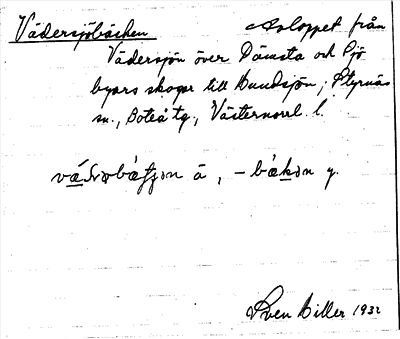 Vädersjöbäcken Avloppet från
Vädersjön över Dämsta och Sjö
byars skogar till Hundsjön; Styrnäs
sn., Boteå tg., Västernorrl. l.
ä, - y.
Sven Hiller 1932